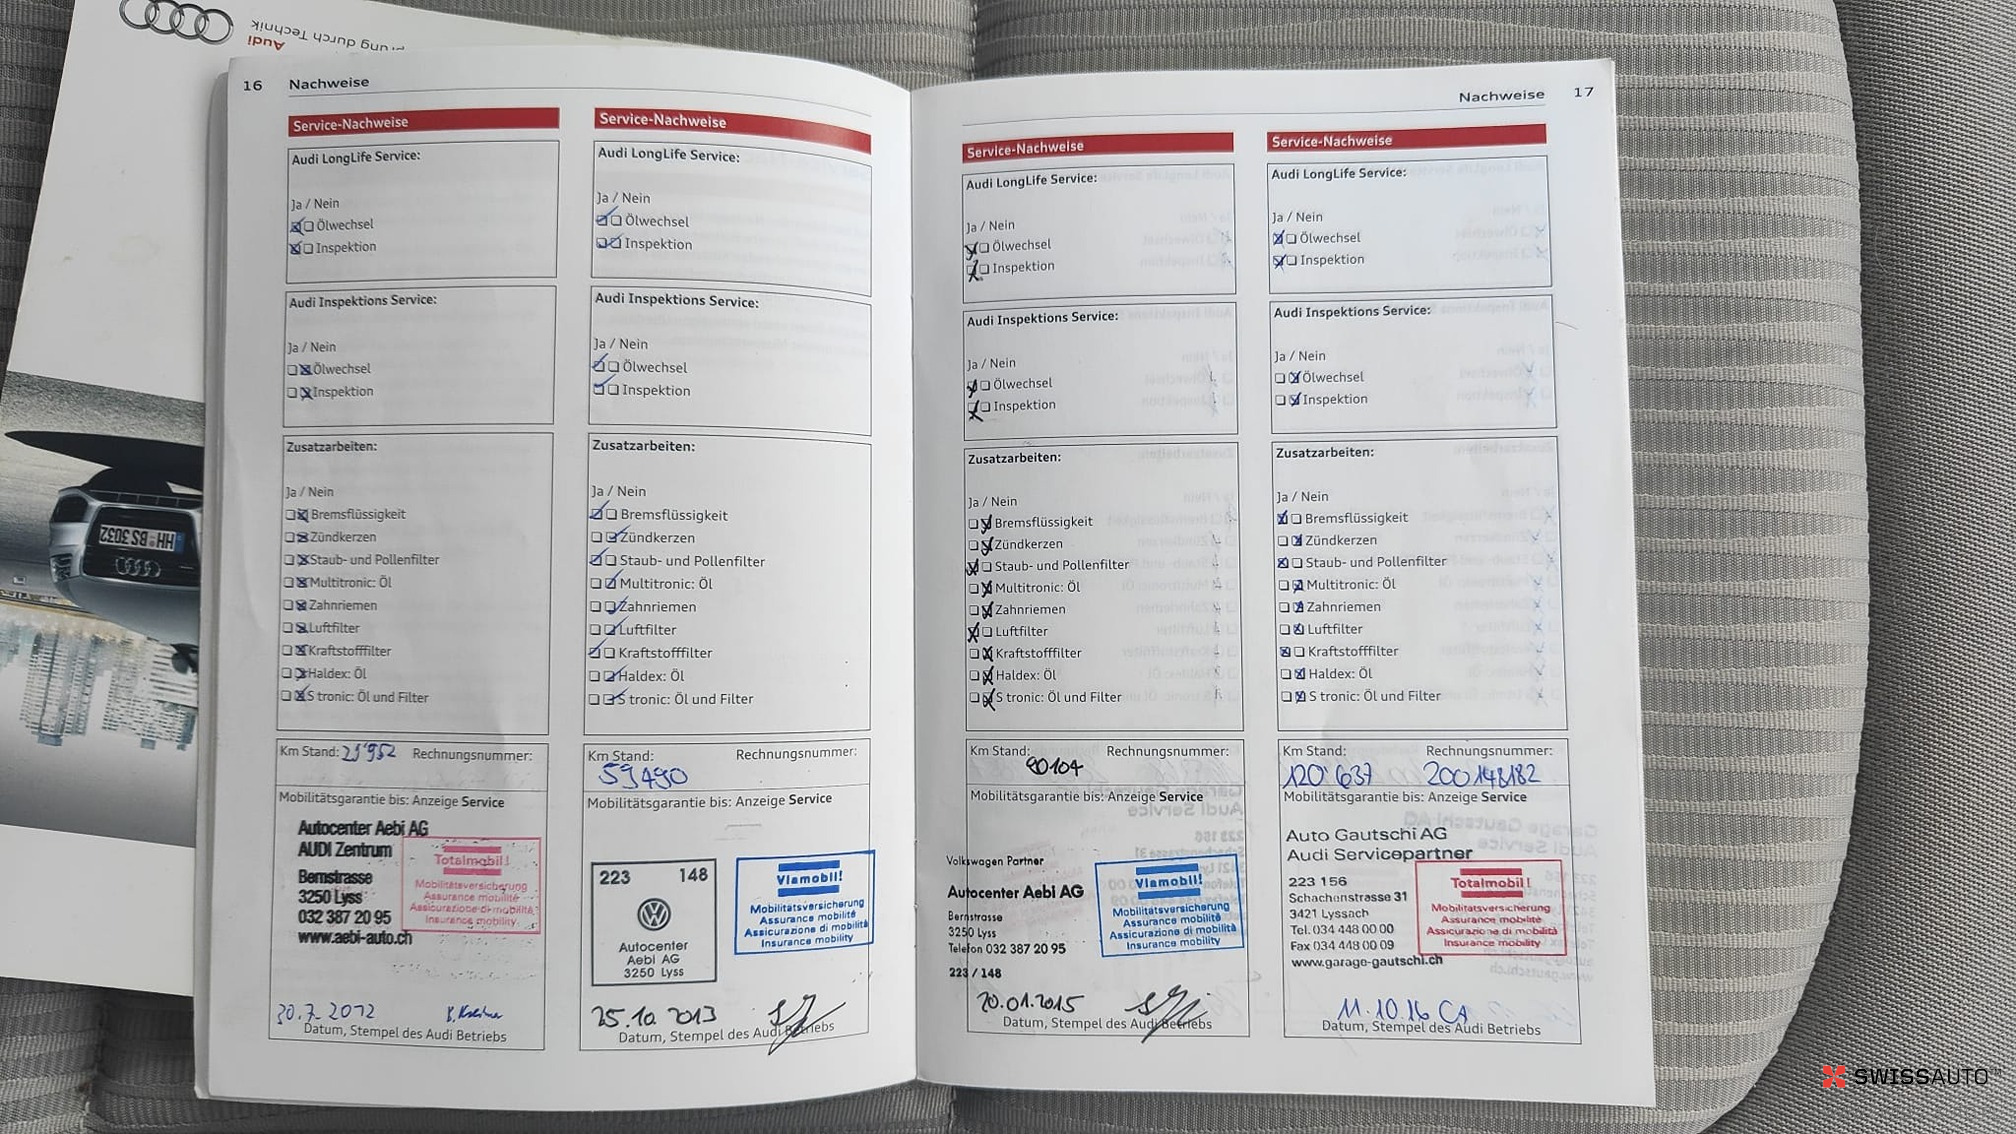 Audi
16 Nachweise
Service-Nachweise
Audi LongLife Service:
Ja / Nein
Ölwechsel
Inspektion
Audi Inspektions Service:
Ja / Nein
Ölwechsel
Inspektion
Zusatzarbeiten:
Ja / Nein
Bremsflüssigkeit
Zündkerzen
Staub- und Pollenfilter
Multitronic: Öl
Zahnriemen
Luftfilter
Kraftstofffilter
Haldex: Öl
S tronic: Öl und Filter
Km Stand: 29'952 Rechnungsnummer:
Mobilitätsgarantie bis: Anzeige Service
Autocenter Aebi AG
AUDI Zentrum
Bernstrasse
3250 Lyss
032 387 20 95
www.aebi-auto.ch
Totalmobil!
Mobilitätsversicherung
Assurance mobilité
Assicurazione di mobilità
Insurance mobility
30.7.2012
Datum, Stempel des Audi Betriebs
Service-Nachweise
Audi LongLife Service:
Ja / Nein
Ölwechsel
Inspektion
Audi Inspektions Service:
Ja / Nein
Ölwechsel
Inspektion
Zusatzarbeiten:
Ja / Nein
Bremsflüssigkeit
Zündkerzen
Staub- und Pollenfilter
Multitronic: Öl
Zahnriemen
Luftfilter
Kraftstofffilter
Haldex: Öl
S tronic: Öl und Filter
Km Stand: Rechnungsnummer:
59490
Mobilitätsgarantie bis: Anzeige Service
223 148
Autocenter
Aebi AG
3250 Lyss
Viamobil!
Mobilitätsversicherung
Assurance mobilité
Assicurazione di mobilità
Insurance mobility
25.10.2013
Datum, Stempel des Audi Betriebs
Nachweise 17
Service-Nachweise
Audi LongLife Service:
Ja / Nein
Ölwechsel
Inspektion
Audi Inspektions Service:
Ja / Nein
Ölwechsel
Inspektion
Zusatzarbeiten:
Ja / Nein
Bremsflüssigkeit
Zündkerzen
Staub- und Pollenfilter
Multitronic: Öl
Zahnriemen
Luftfilter
Kraftstofffilter
Haldex: Öl
S tronic: Öl und Filter
Km Stand: Rechnungsnummer:
90104
Mobilitätsgarantie bis: Anzeige Service
Volkswagen Partner
Autocenter Aebi AG
Bernstrasse
3250 Lyss
Telefon 032 387 20 95
223 / 148
Viamobil!
Mobilitätsversicherung
Assurance mobilité
Assicurazione di mobilità
Insurance mobility
20.01.2015
Datum, Stempel des Audi Betriebs
Service-Nachweise
Audi LongLife Service:
Ja / Nein
Ölwechsel
Inspektion
Audi Inspektions Service:
Ja / Nein
Ölwechsel
Inspektion
Zusatzarbeiten:
Ja / Nein
Bremsflüssigkeit
Zündkerzen
Staub- und Pollenfilter
Multitronic: Öl
Zahnriemen
Luftfilter
Kraftstofffilter
Haldex: Öl
S tronic: Öl und Filter
Km Stand: Rechnungsnummer:
120'637 200148182
Mobilitätsgarantie bis: Anzeige Service
Auto Gautschi AG
Audi Servicepartner
223 156
Schachenstrasse 31
3421 Lyssach
Tel. 034 448 00 00
Fax 034 448 00 09
www.garage-gautschi.ch
Totalmobil!
Mobilitätsversicherung
Assurance mobilité
Assicurazione di mobilità
Insurance mobility
11.10.16 CA
Datum, Stempel des Audi Betriebs
HH·BS 3032
SWISSAUTO™